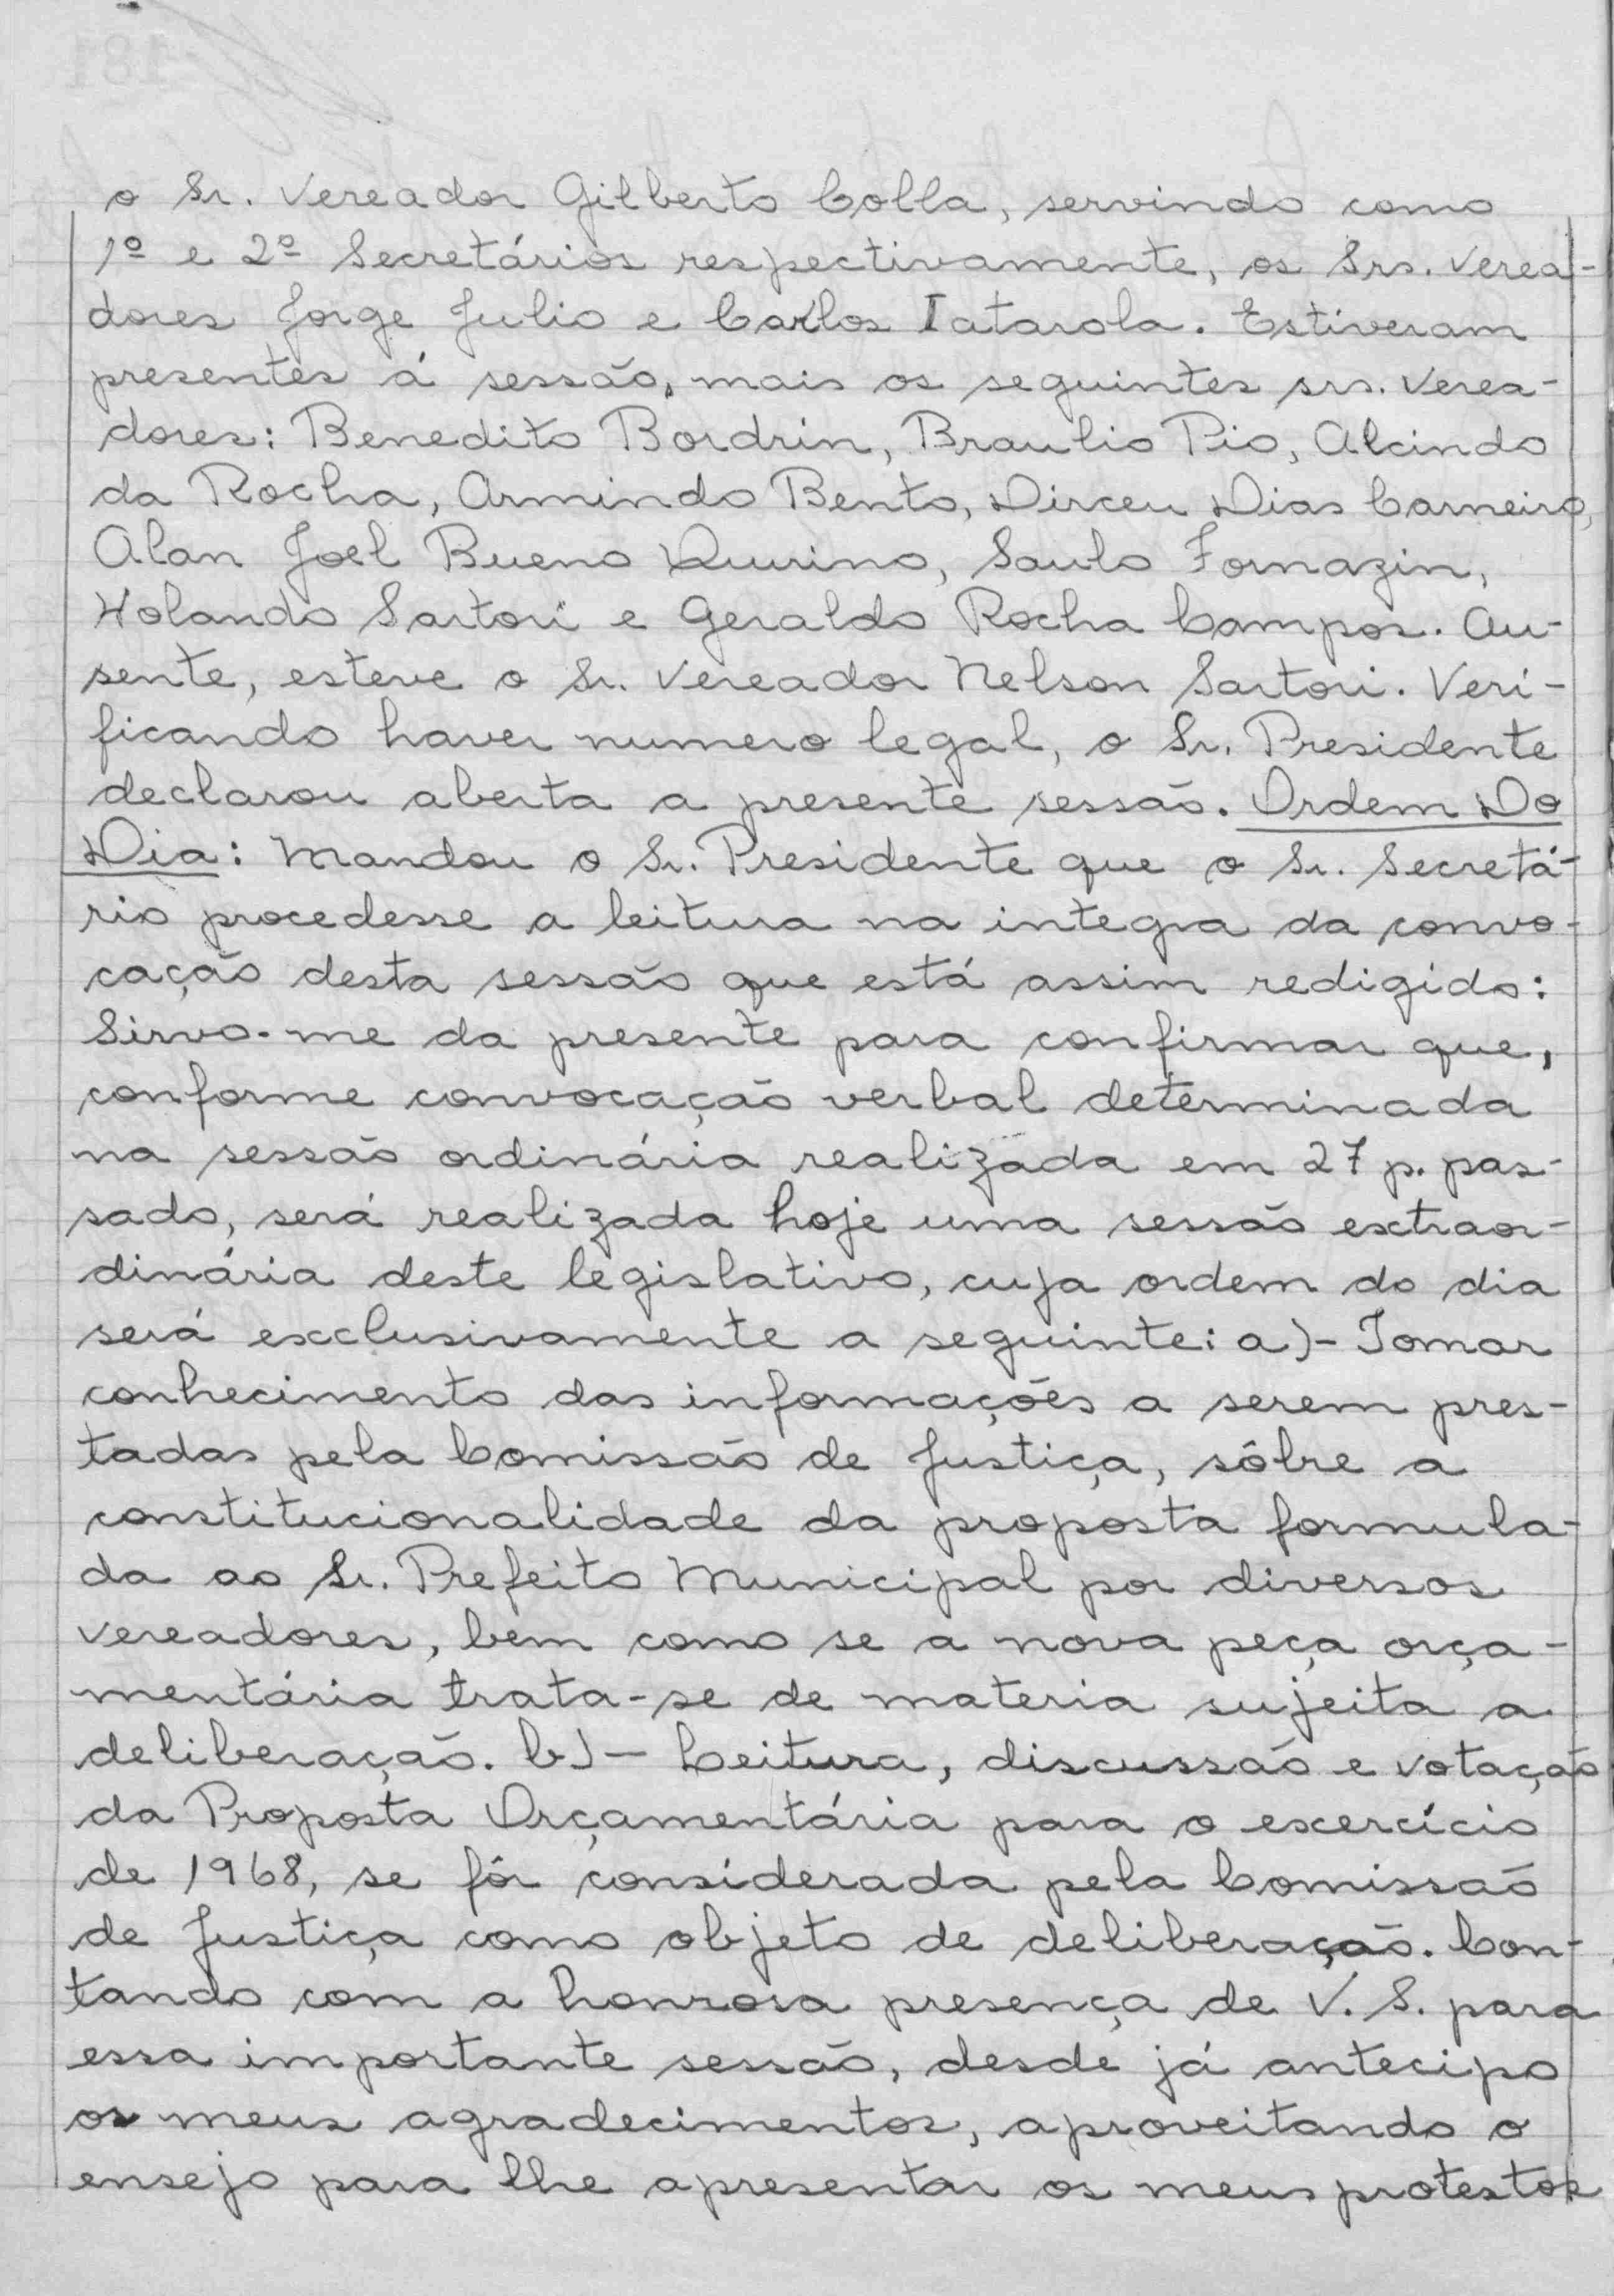 o Sr. Vereador Gilberto Colla, servindo como
1º e 2º Secretários respectivamente, os Srs. Verea-
dores Jorge Julio e Carlos Iatarola. Estiveram
presentes á sessão, mais os seguintes srs. Verea-
dores: Benedito Bordrin, Braulio Pio, Alcindo
da Rocha, Armindo Bento, Dirceu Dias Carneiro,
Alan Joel Bueno Quirino, Saulo Fornazin,
Holando Sartori e Geraldo Rocha Campos. Au-
sente, esteve o Sr. Vereador Nelson Sartori. Veri-
ficando haver numero legal, o Sr. Presidente
declarou aberta a presente sessão. Ordem Do
Dia: Mandou o Sr. Presidente que o Sr. Secretá-
rio procedesse a leitura na integra da convo-
cação desta sessão que está assim redigido:
Sirvo-me da presente para confirmar que,
conforme convocação verbal determinada
na sessão ordinária realizada em 27 p. pas-
sado, será realizada hoje uma sessão extraor-
dinária deste legislativo, cuja ordem do dia
será exclusivamente a seguinte: a)- Tomar
conhecimento das informações a serem pres-
tadas pela Comissão de Justiça, sôbre a
constitucionalidade da proposta formula-
da ao Sr. Prefeito Municipal por diversos
vereadores, bem como se a nova peça orça-
mentária trata-se de materia sujeita a
deliberação. b)- Leitura, discussão e votação
da Proposta Orçamentária para o exercício
de 1968, se fôr considerada pela Comissão
de Justiça como objeto de deliberação. Con-
tando com a honrosa presença de V. S. para
essa importante sessão, desde já antecipo
os meus agradecimentos, aproveitando o
ensejo para lhe apresentar os meus protestos